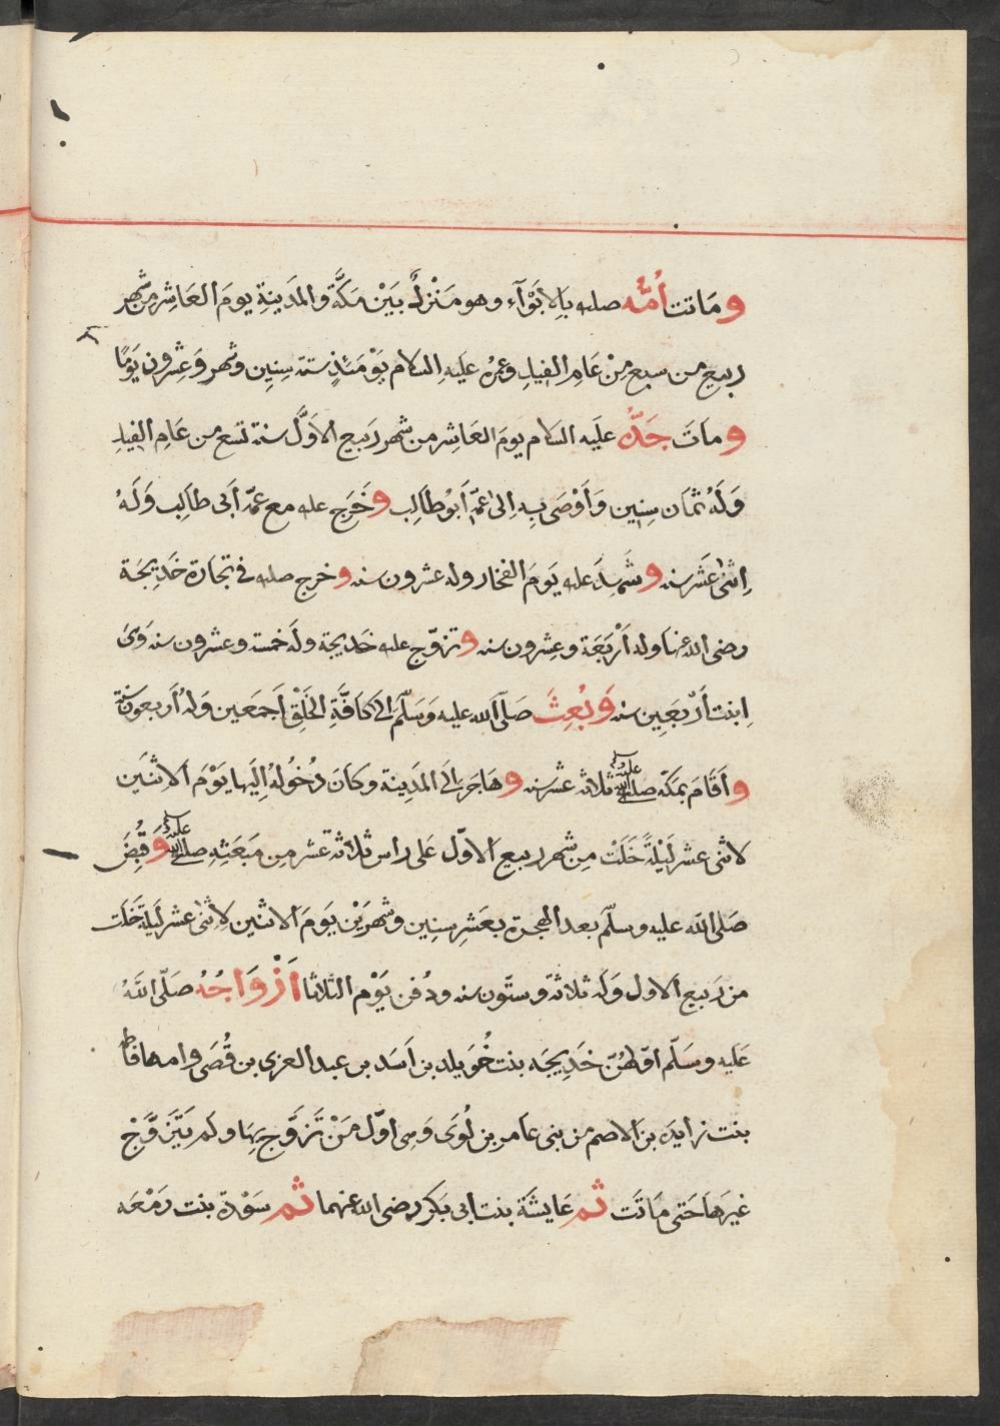 وَمَاتت اُمُّه صلعه بِالاَبْوَآءِ وهو مَنْزِلٌ بَيْن مَكَّةَ والمَدِينةِ يومَ العَاشِر من شهر
ربيع من سبع مِنْ عَامِ الفِيل وعمرُه عليهِ السلام يَوْمَئذٍ ستة سِنِين وشهر وَعِشْرون يَوْمًا
وماتَ جَدُّهُ عليه السلام يومَ العَاشِر من شهر رَبيع الاَوَّل سنة تسع من عَامِ الفِيل
وَلَهُ ثمَان سِنِين وَاَوْصَى بِهِ اِلىٰ عَمِّهِ اَبُوْ طَالِب وخَرَج عله مع عمّه اَبى طالِب وَلَهُ
اِثنىٰ عَشر سنه وشَهِدَ عله يَومَ الفخار وله عشرون سنه وخرج صلعه فى تجَارَة خَدِيجَة
رضى الله عنها وله اَرْبَعَة وعِشرون سنه وتزوّج عله خَديجة وله خمسة وعشرون سنه وَهى
اِبنت اَرْبَعِين سنه وَبُعِثَ صَلّى الله عليه وَسَلّم الى كَافَّةِ الخَلْقِ اَجمَعين وَلهُ اَربعون سنة
واَقَامَ بمَكّه صلى الله عليه وسلم ثلاثه عشر سنه وهَاجَر الَى المَدِينة وكانَ دُخُولهُ اِلَيها يَوْمَ الاثنَين
لاثنى عشر لَيْلَةً خَلَتْ مِن شهر ربيع الاوّل عَلى راس ثلاثة عَشر مِن مَبعَثِهِ صلى الله عليه وسلم وَقُبِضَ
صَلى الله عليه وسلّم بعد الهجرة بعَشرِ سِنِين وشهرَيْن يَومَ الاثنين لاثنى عشر لَيلة خَلَت
من رَبيع الاول وَله ثلاثة وستّون سنه ودُفن يَوْم الثلاثا اَزْوَاجُهُ صَلّى اللهُ
عَليه وسَلّم اوّلهُنّ خَدِيجَه بنت خُوَيلد بن اَسَد بن عبد العزى بن قُصَى وامها فاطمه
بنت زايده بن الاصم من بنى عَامر بن لُوَى وَهى اوّل مَنْ تَزَوَّج بِهَا ولم يَتَزَوَّجْ
غيرهَا حَتى مَاتَت ثم عَايشَة بنت ابى بَكر رضى الله عنهما ثم سَوْدَة بنت زَمْعَه